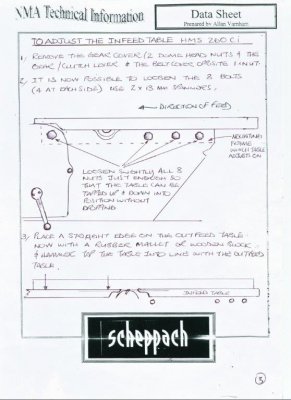 NMA Technical Information
Data Sheet
Prepared by Allan Yarnham
TO ADJUST THE INFEED TABLE HMS 260 Ci
1) REMOVE THE GEAR COVER/2 DOME HEAD NUTS & THE
GEAR/CLUTCH LEVER & THE BELT COVER OPPOSITE 1 NUT.
2) IT IS NOW POSSIBLE TO LOOSEN THE 8 BOLTS
(4 AT EACH SIDE) USE 2 x 13 MM SPANNERS.
DIRECTION OF FEED
MOUNTING
FRAME
WHICH TABLE
ADJUSTS ON
LOOSEN SLIGHTLY ALL 8
NUTS JUST ENOUGH SO
THAT THE TABLE CAN BE
TAPPED UP & DOWN INTO
POSITION WITHOUT
DROPPING
3) PLACE A STRAIGHT EDGE ON THE OUTFEED TABLE
NOW WITH A RUBBER MALLET OR WOODEN BLOCK
& HAMMER TAP THE TABLE INTO LINE WITH THE OUTFEED
TABLE.
INFEED TABLE
scheppach
5